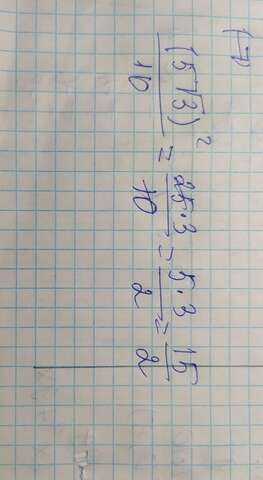 17)
(5√3)² / 10 = 25·3 / 10 = 5·3 / 2 = 15 / 2